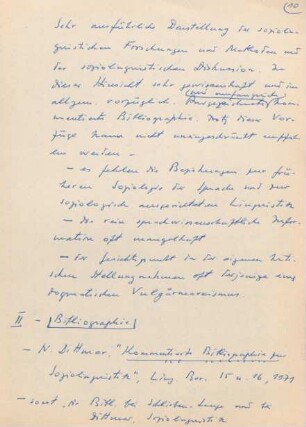 10
Sehr ausführliche Darstellung der soziolin-
guistischen Forschungen und Methoden und
der soziolinguistischen Diskussion. In
dieser Hinsicht sehr gewissenhaft und im
allgem. vorzüglich. Ausgezeichnete kom-
(sehr umfangreich)
mentierte Bibliographie. Trotz dieser Vor-
züge kann nicht uneingeschränkt empfoh-
len werden -
- es fehlen die Beziehungen zur frü-
heren Soziologie der Sprache und zur
soziologisch ausgerichteten Linguistik
- die rein sprachwissenschaftliche Infor-
mation oft mangelhaft
- der Gesichtspunkt in der eigenen kri-
tischen Stellungnahmen oft derjenige eines
dogmatischen Vulgärmarxismus.
II - Bibliographie
- N. Dittmar, "Kommentierte Bibliographie zur
Soziolinguistik", Ling. Ber. 15 u. 16, 1971
- sonst, die Bibl. bei Schlieben-Lange und bei
Dittmar, Soziolinguistik